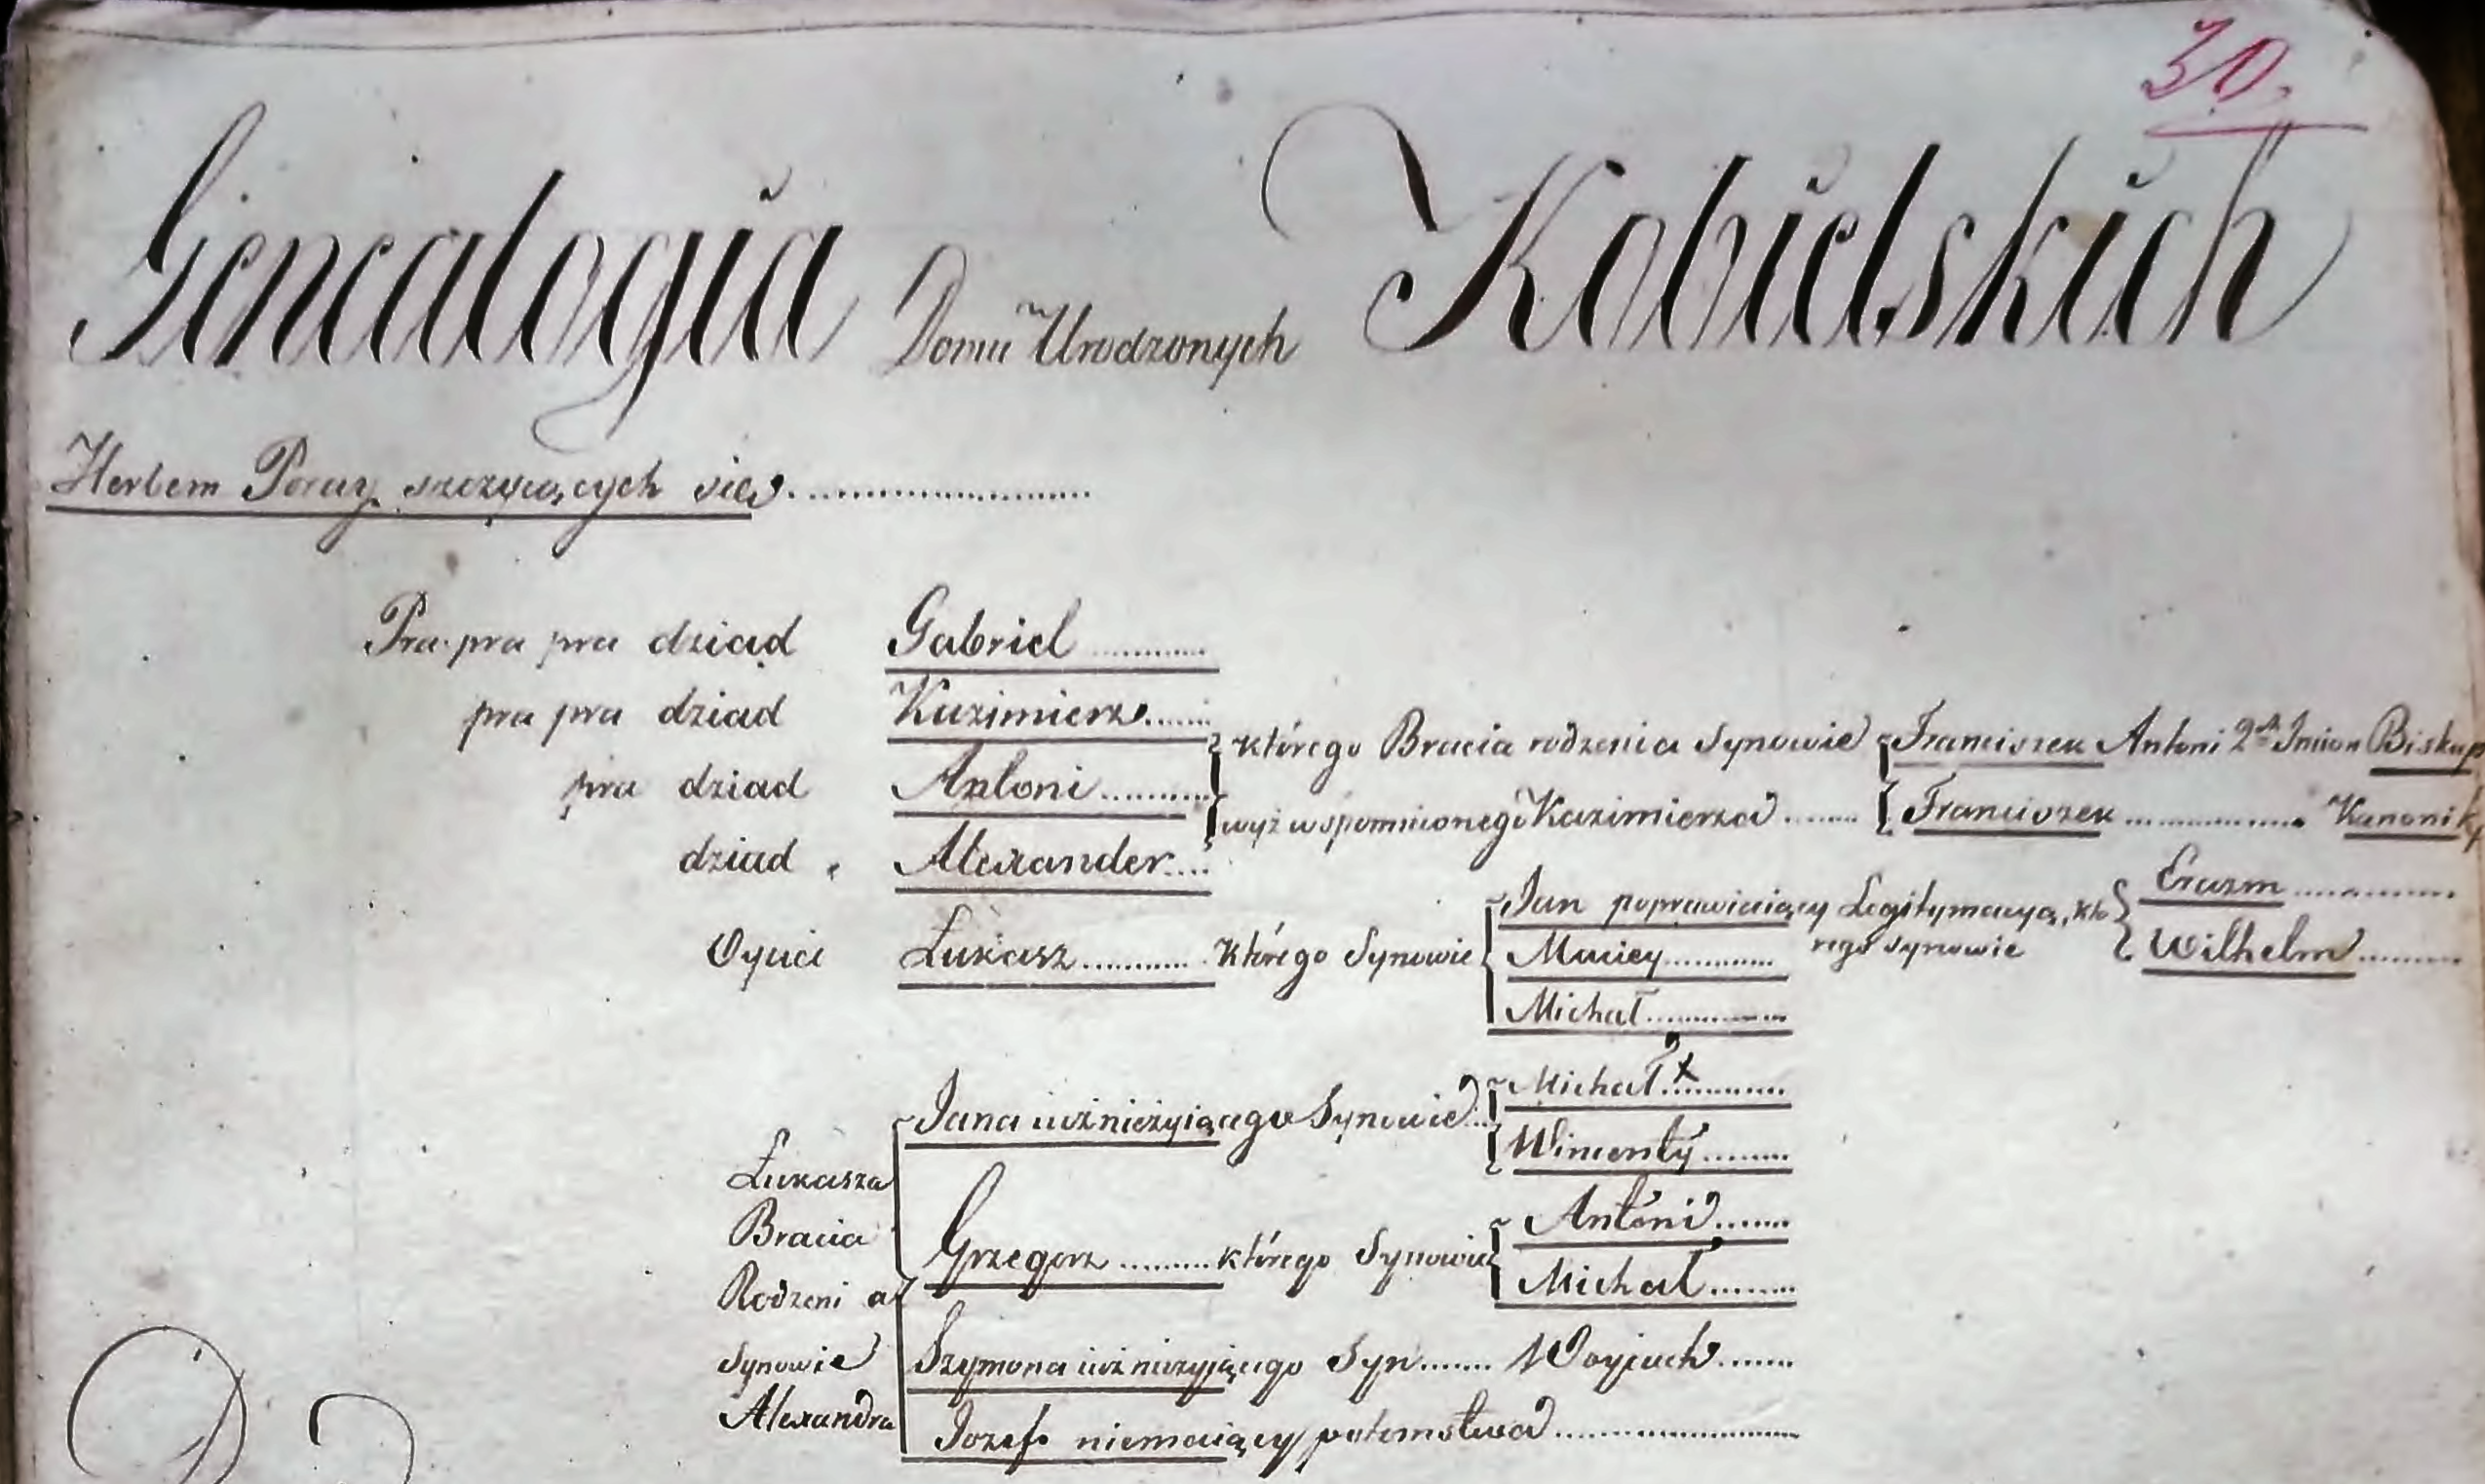 30.
Genealogia Domu Urodzonych Kobielskich
Herbem Poray szczycących się
Pra pra pra dziad Gabriel
pra pra dziad Kazimierz
którego Bracia rodzenia Synowie Franciszek Antoni 2ch Imion Biskup
pra dziad Antoni
wyż wspomnionego Kazimierza Franciszek Kanonik
dziad Alexander
Oyciec Łukasz którego Synowie
Jan poprawiaiący Legitymacyą, którego synowie
Erazm
Wilhelm
Maciey
Michał
Łukasza Bracia Rodzeni a Synowie Alexandra
Jana iuż nieżyiącego Synowie
Michał x
Wincenty
Grzegorz którego Synowie
Antoni
Michał
Szymona iuż nieżyjącego Syn Woyciech
Jozef niemaiący potomstwa